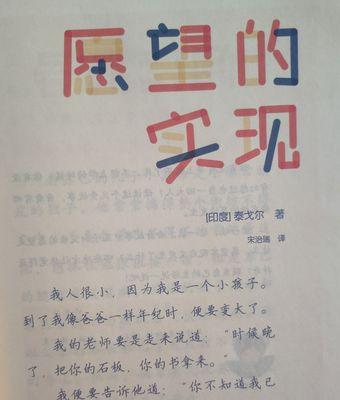 愿望的
实现
[印度] 泰戈尔 著
宋治瑞 译
我人很小，因为我是一个小孩子。
到了我像爸爸一样年纪时，便要变大了。
我的老师要是走来说道：“时候晚
了，把你的石板，你的书拿来。”
我便要告诉他道：“你不知道我已